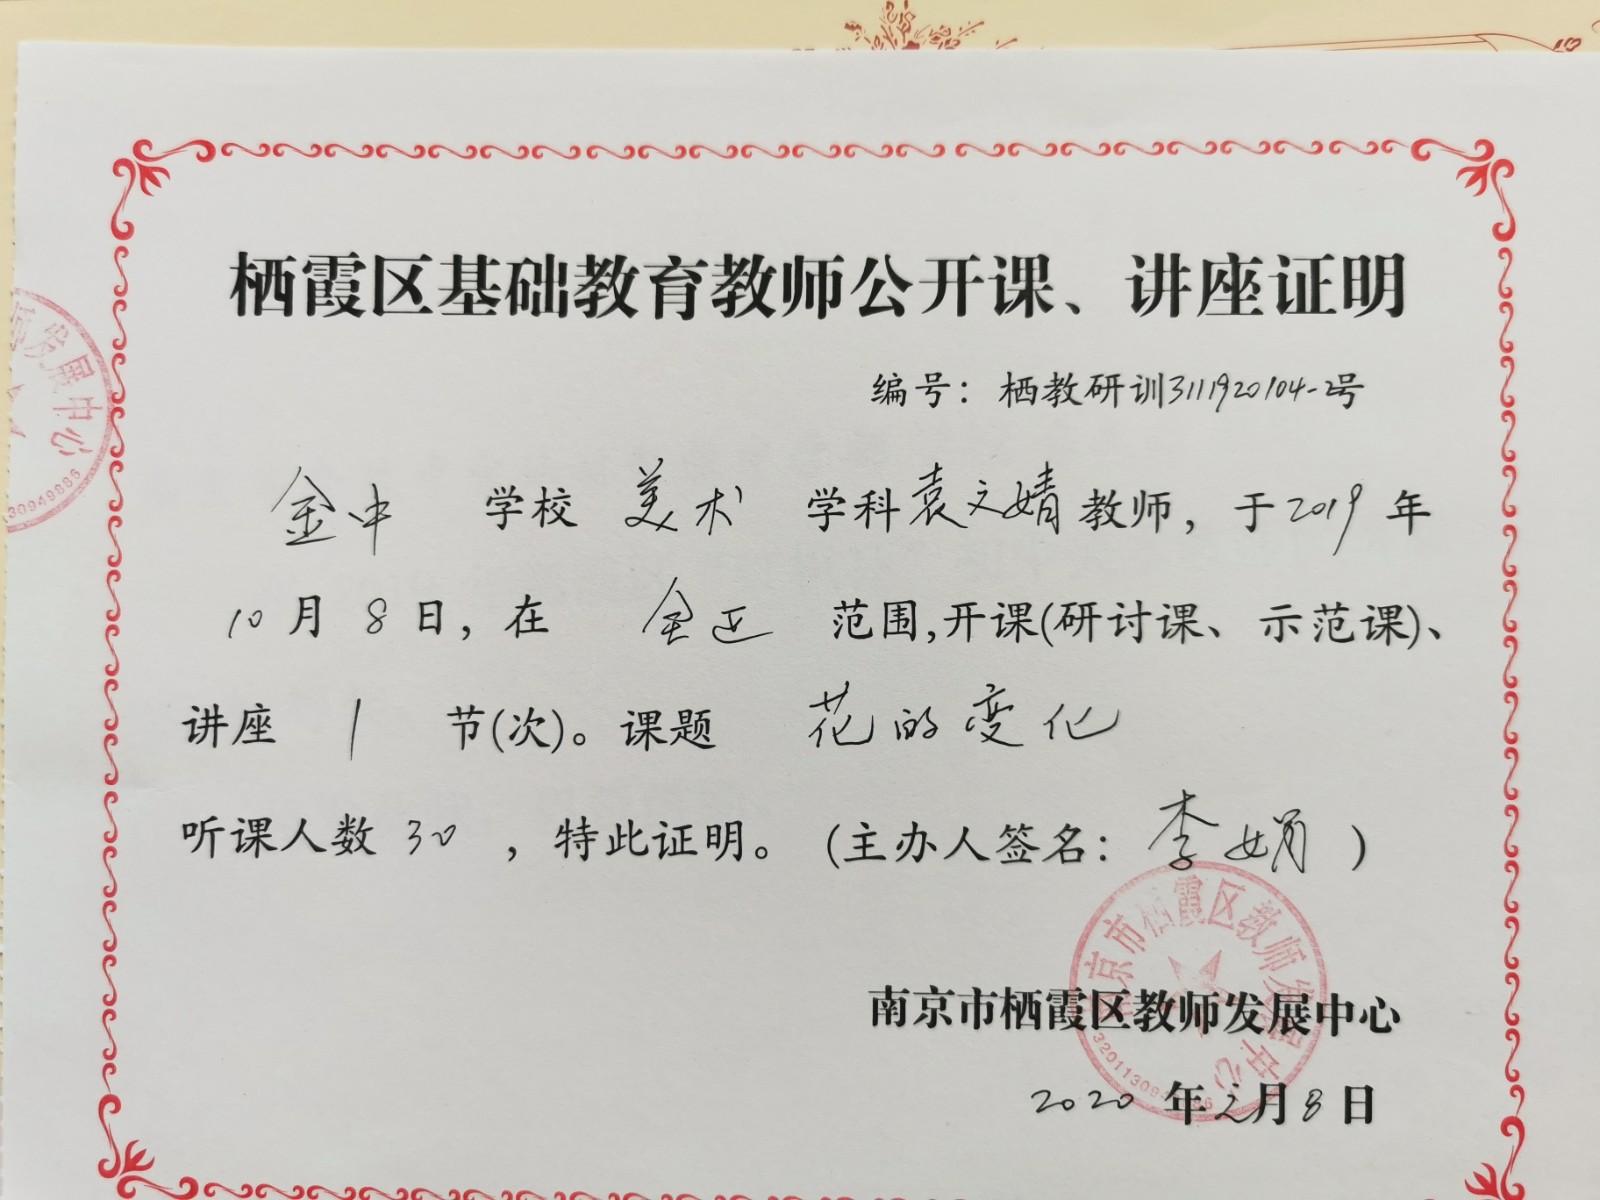 栖霞区基础教育教师公开课、讲座证明
编号：栖教研训311920104-2号
金中 学校 美术 学科袁文婧教师，于2019年
10月8日，在 全区 范围,开课(研讨课、示范课)、
讲座 1 节(次)。课题 花的变化
听课人数 30 ，特此证明。（主办人签名：李娟）
南京市栖霞区教师发展中心
2020年2月8日
南京市栖霞区教师发展中心
师发展中心
30949886